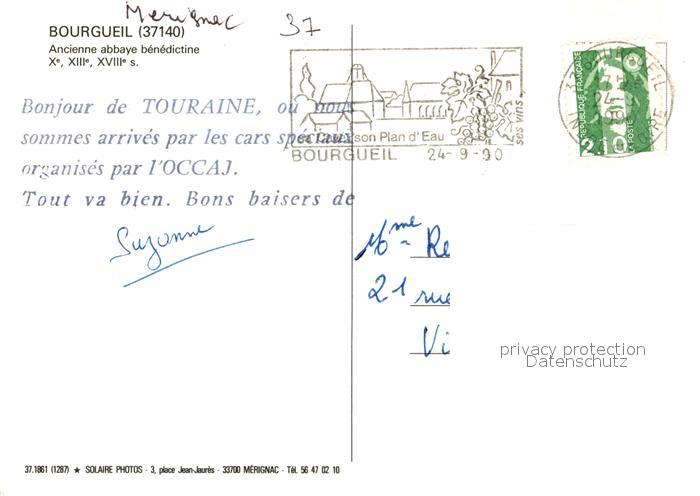 Merignac 37
BOURGUEIL (37140)
Ancienne abbaye bénédictine
Xᵉ, XIIIᵉ, XVIIIᵉ s.
Bonjour de TOURAINE, où nous
sommes arrivés par les cars spéciaux
organisés par l'OCCAJ.
Tout va bien. Bons baisers de
Suzanne
son Plan d'Eau
ses vins
BOURGUEIL 24-9-90
37 BOURGUEIL
REPUBLIQUE FRANÇAISE
LA POSTE
2,10
Mme Re
21 rue
Vi
privacy protection
Datenschutz
37.1861 (1287) ★ SOLAIRE PHOTOS - 3, place Jean-Jaurès - 33700 MÉRIGNAC - Tél. 56 47 02 10